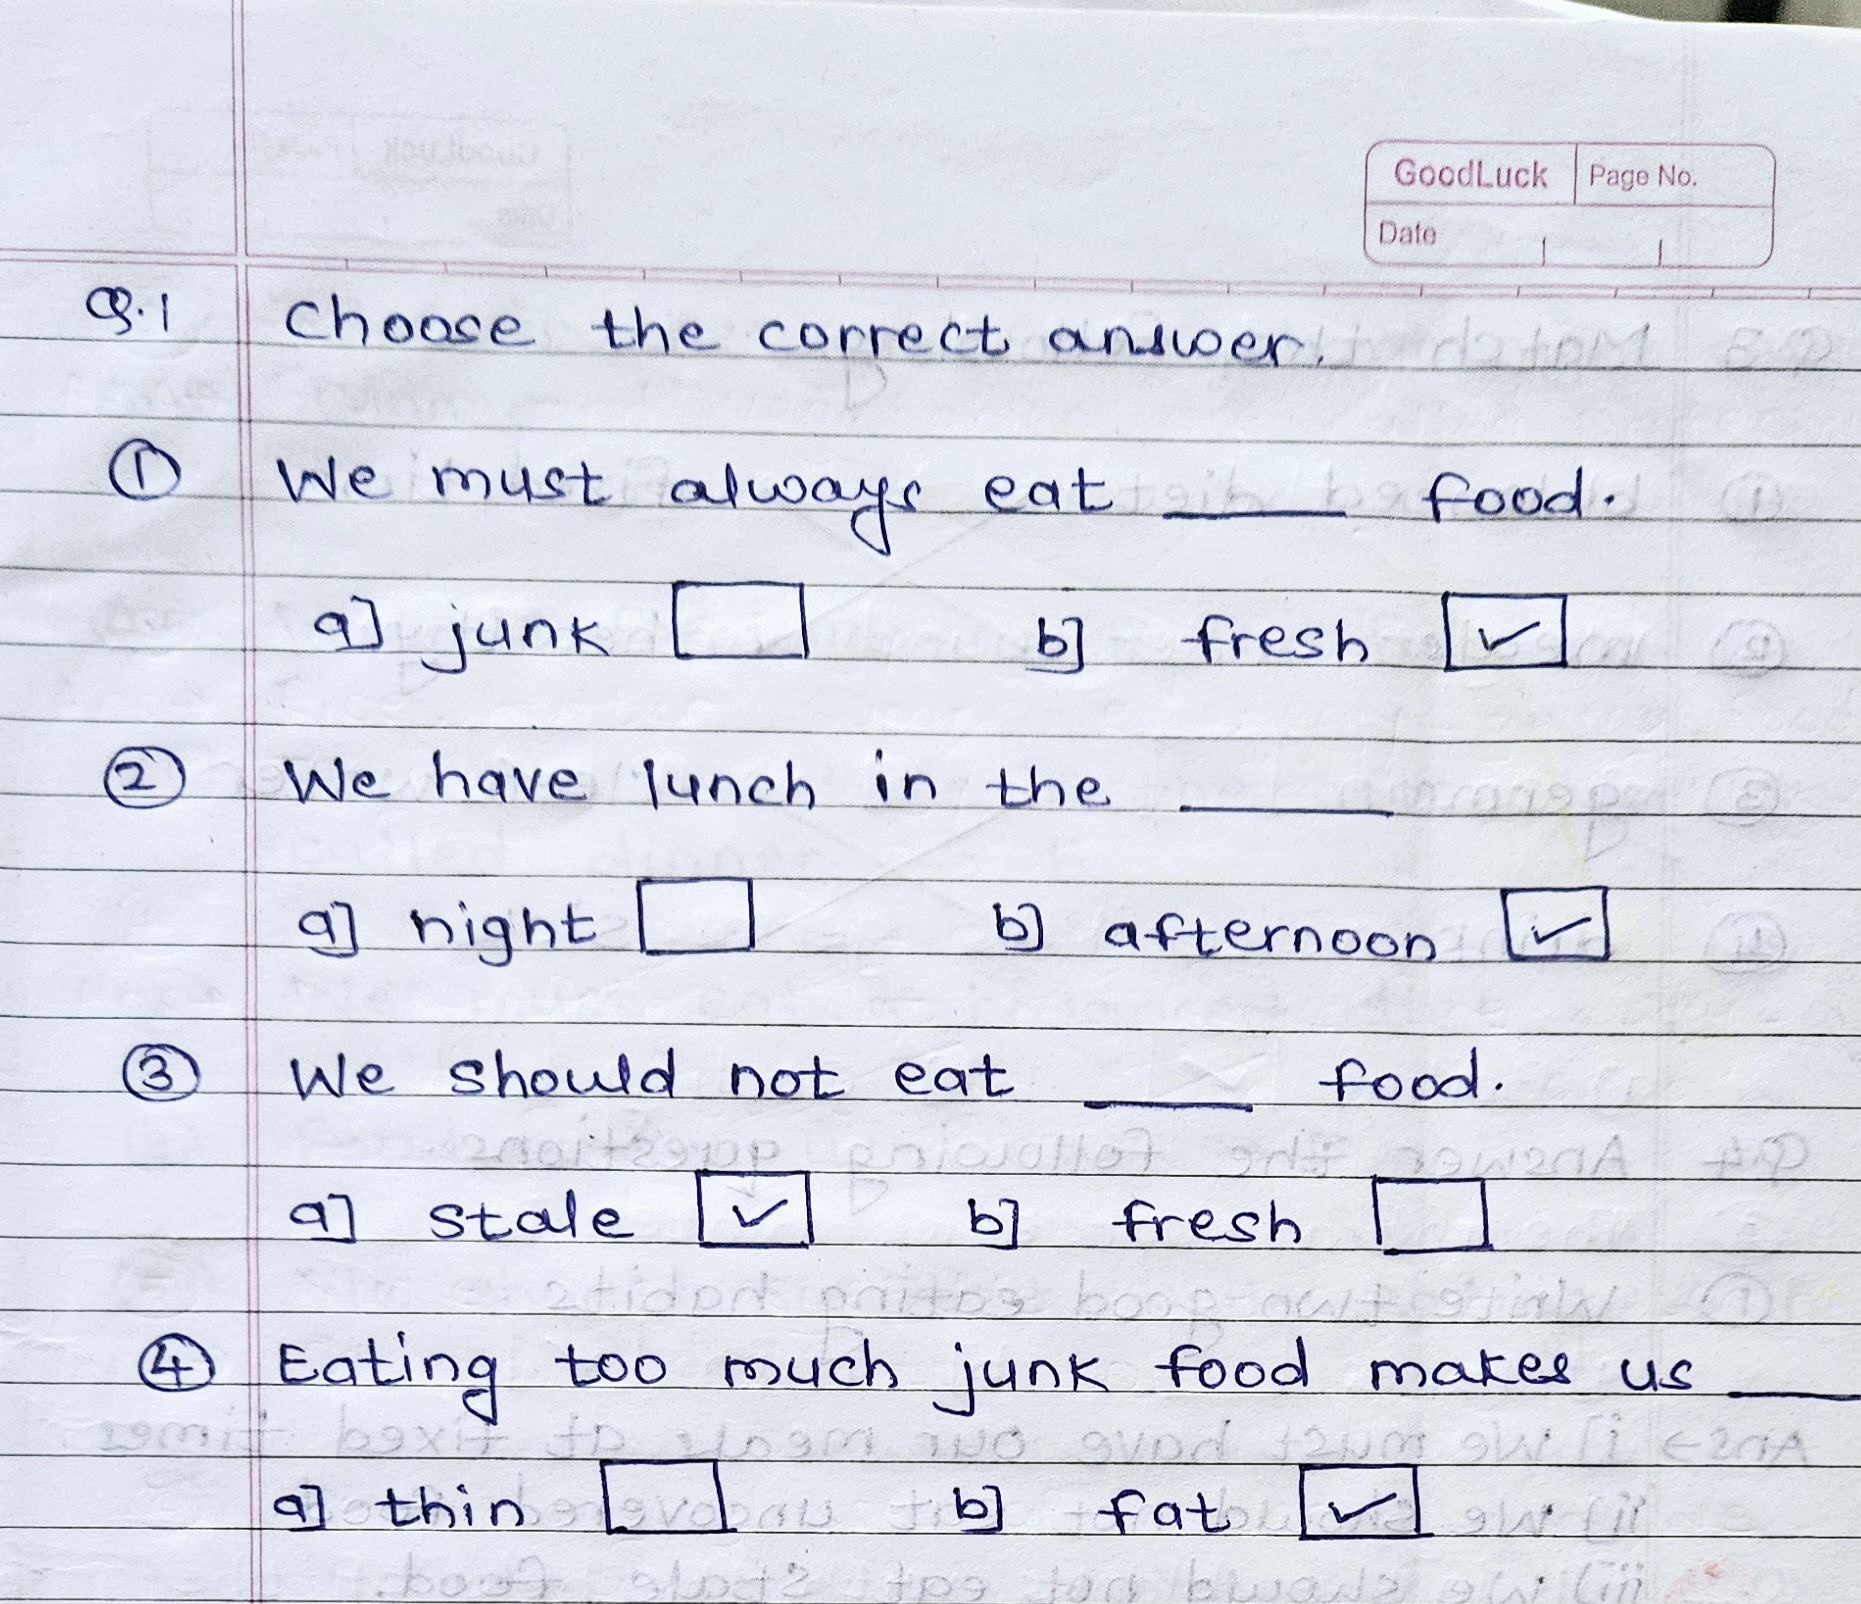 GoodLuck Page No.
Date
Q.1 Choose the correct answer.
① We must always eat ____ food.
a] junk ☐ b] fresh ☑
② We have lunch in the ____
a] night ☐ b] afternoon ☑
③ We should not eat ____ food.
a] stale ☑ b] fresh ☐
④ Eating too much junk food makes us ____
a] thin ☐ b] fat ☑